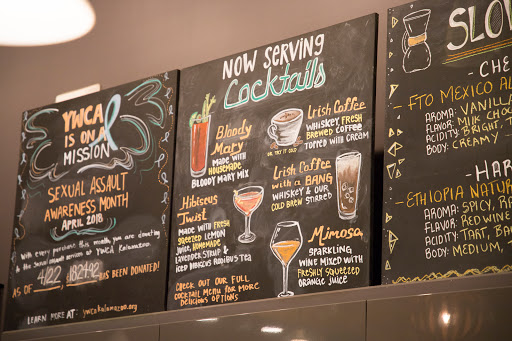 YWCA
IS ON A
MISSION
SEXUAL ASSAULT
AWARENESS MONTH
APRIL 2018
With every purchase this month, you are donating
to the sexual assault services at YWCA Kalamazoo.
AS OF 4/22 HAS BEEN DONATED!
LEARN MORE AT: ywcakalamazoo.org
NOW SERVING
Cocktails
Bloody
Mary
MADE WITH
HOUSEMADE
BLOODY MARY MIX
Irish Coffee
WHISKEY FRESH
BREWED COFFEE
TOPPED WITH CREAM
OR, TRY IT COLD
Irish Coffee
with a BANG
WHISKEY & OUR
COLD BREW STIRRED
Hibiscus
Twist
MADE WITH FRESH
SQUEEZED LEMON
JUICE, HOMEMADE
LAVENDER SYRUP &
ICED HIBISCUS RUBIBUS TEA
Mimosa
SPARKLING
WINE MIXED WITH
FRESHLY SQUEEZED
ORANGE JUICE
CHECK OUT OUR FULL
COCKTAIL MENU FOR MORE
DELICIOUS OPTIONS
SLO
CHE
- FTO MEXICO AL
AROMA: VANILLA
FLAVOR: MILK CHO
ACIDITY: BRIGHT,
BODY: CREAMY
HAR
- ETHIOPIA NATUR
AROMA: SPICY, RA
FLAVOR: RED WINE
ACIDITY: TART, BA
BODY: MEDIUM,